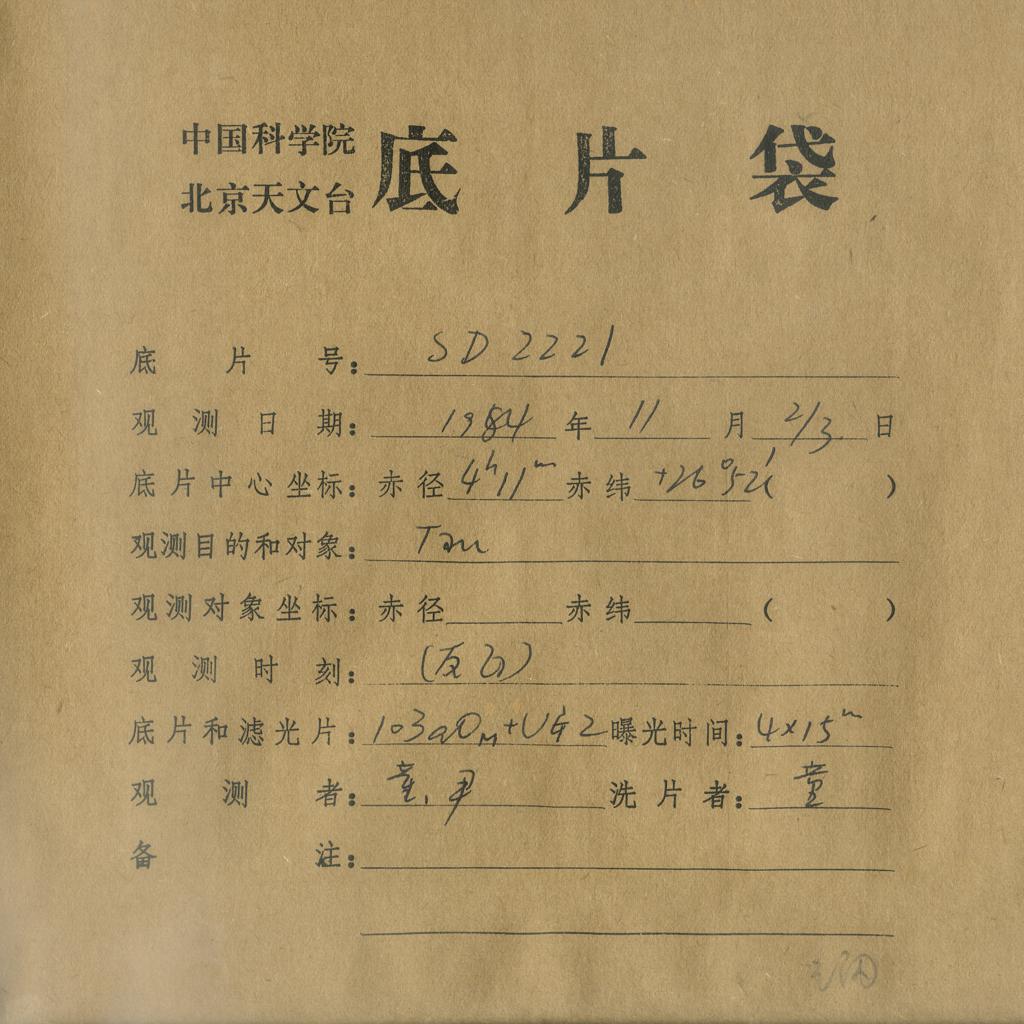 中国科学院
北京天文台
底片袋
底片号：SD 2221
观测日期：1984年11月2/3日
底片中心坐标：赤径4ʰ11ᵐ赤纬+26°52′( )
观测目的和对象：Tau
观测对象坐标：赤径 赤纬 ( )
观测时刻：
底片和滤光片：103aO_M+UG2 曝光时间：4×15ᵐ
观测者：童、尹 洗片者：童
备注：